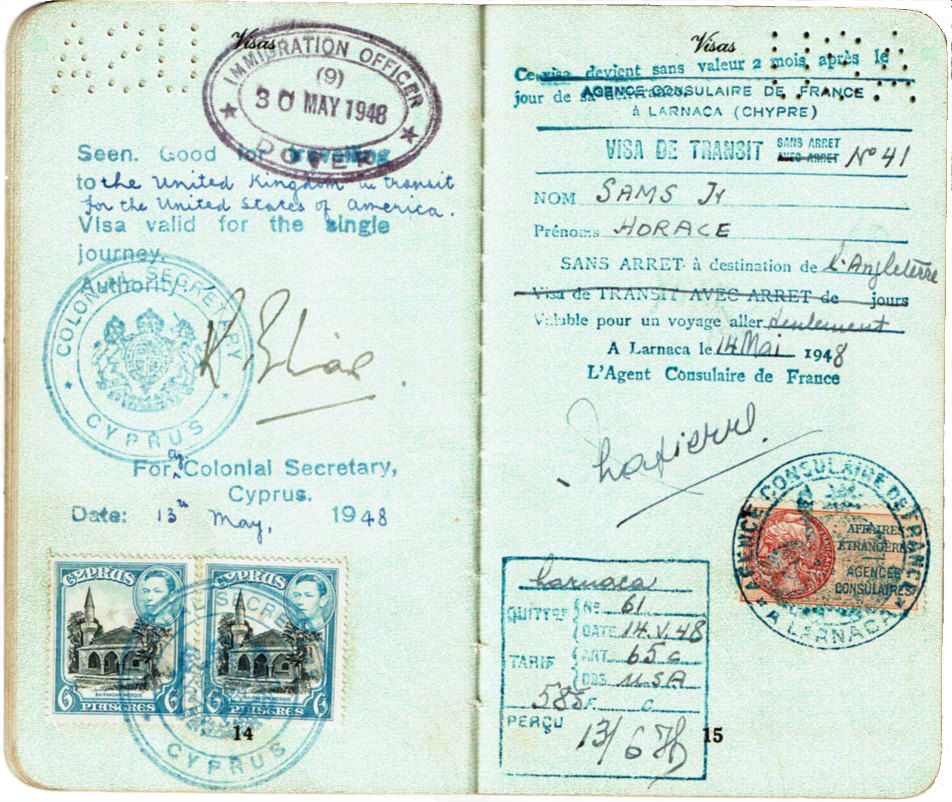 Visas
IMMIGRATION OFFICER
(9)
30 MAY 1948
DOVER
Seen. Good for travelling
to the United Kingdom in transit
for the United States of America.
Visa valid for the single
journey.
Authority
COLONIAL SECRETARY
CYPRUS
For ag. Colonial Secretary,
Cyprus.
Date: 13th May, 1948
CYPRUS
CYPRUS
6 PIASTRES 6
6 PIASTRES 6
CYPRUS
14
Visas
Ce visa devient sans valeur 2 mois après le
jour de sa délivrance.
AGENCE CONSULAIRE DE FRANCE
à LARNACA (CHYPRE)
VISA DE TRANSIT SANS ARRET AVEC ARRET No 41
NOM SAMS Jr
Prénoms HORACE
SANS ARRET à destination de l'Angleterre
Visa de TRANSIT AVEC ARRET de jours
Valable pour un voyage aller seulement
A Larnaca le 14 Mai 1948
L'Agent Consulaire de France
AGENCE CONSULAIRE DE FRANCE
A LARNACA
AFFAIRES
ÉTRANGÈRES
AGENCES
CONSULAIRES
Larnaca
QUITTCE No 61
DATE 14.V.48
TARIF ART 65 c
OBS USA
585 F. C.
PERÇU 13/6
15